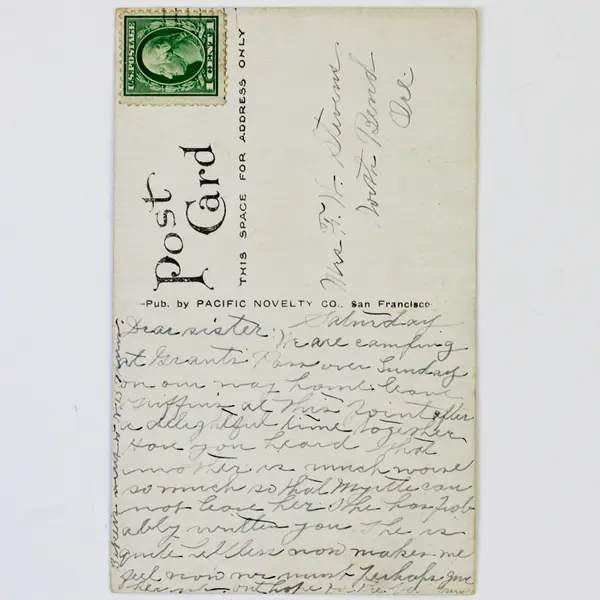 U.S. POSTAGE
1 CENT
Post
Card
THIS SPACE FOR ADDRESS ONLY
Mrs F. W. Stevens
North Bend
Ore.
Pub. by PACIFIC NOVELTY CO., San Francisco
Saturday
Dear sister. We are camping
at Grants Pass over Sunday
on our way home leave
Griffins at this point after
a delightful time together
Have you heard that
mother is much worse
so much so that Myrtle can
not leave her she has prob
ably written you She is
quite helpless now makes me
feel now we must perhaps give
her up. hope to